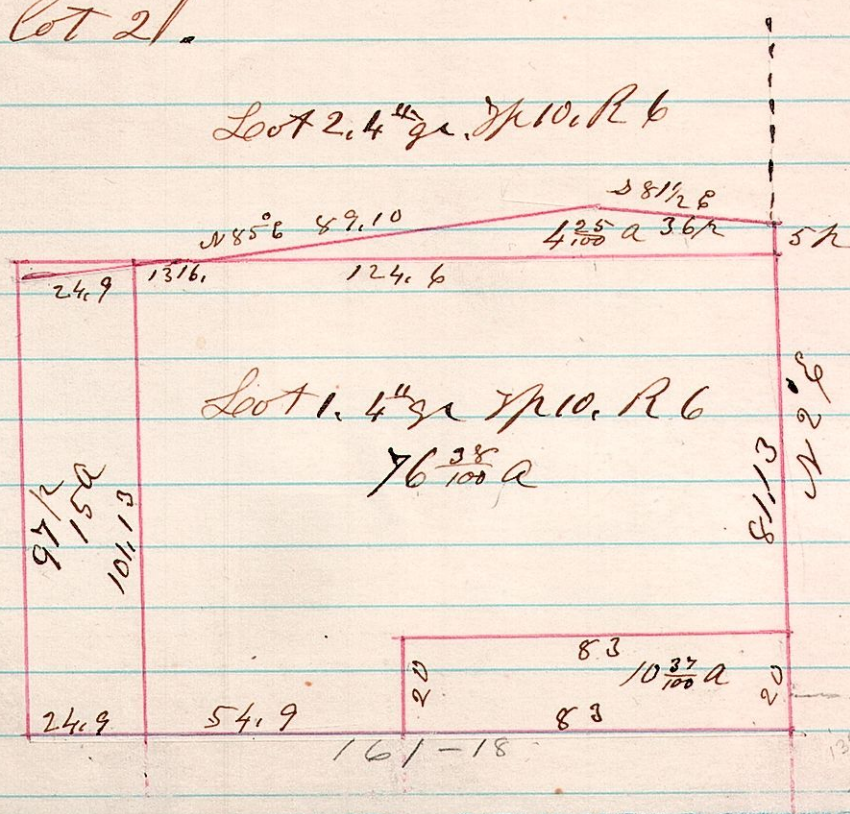 Lot 21.
Lot 2. 4" qr. Tp 10. R 6
S 81 1/2 E
N 85° E 89.10
4 25/100 a 36 p
5 p
24.9
1316.
124.6
Lot 1. 4" qr Tp 10. R 6
76 38/100 a
N 2° E
81.13
97 p
15 a
101.13
83
10 37/100 a
20
20
24.9
54.9
83
161-18